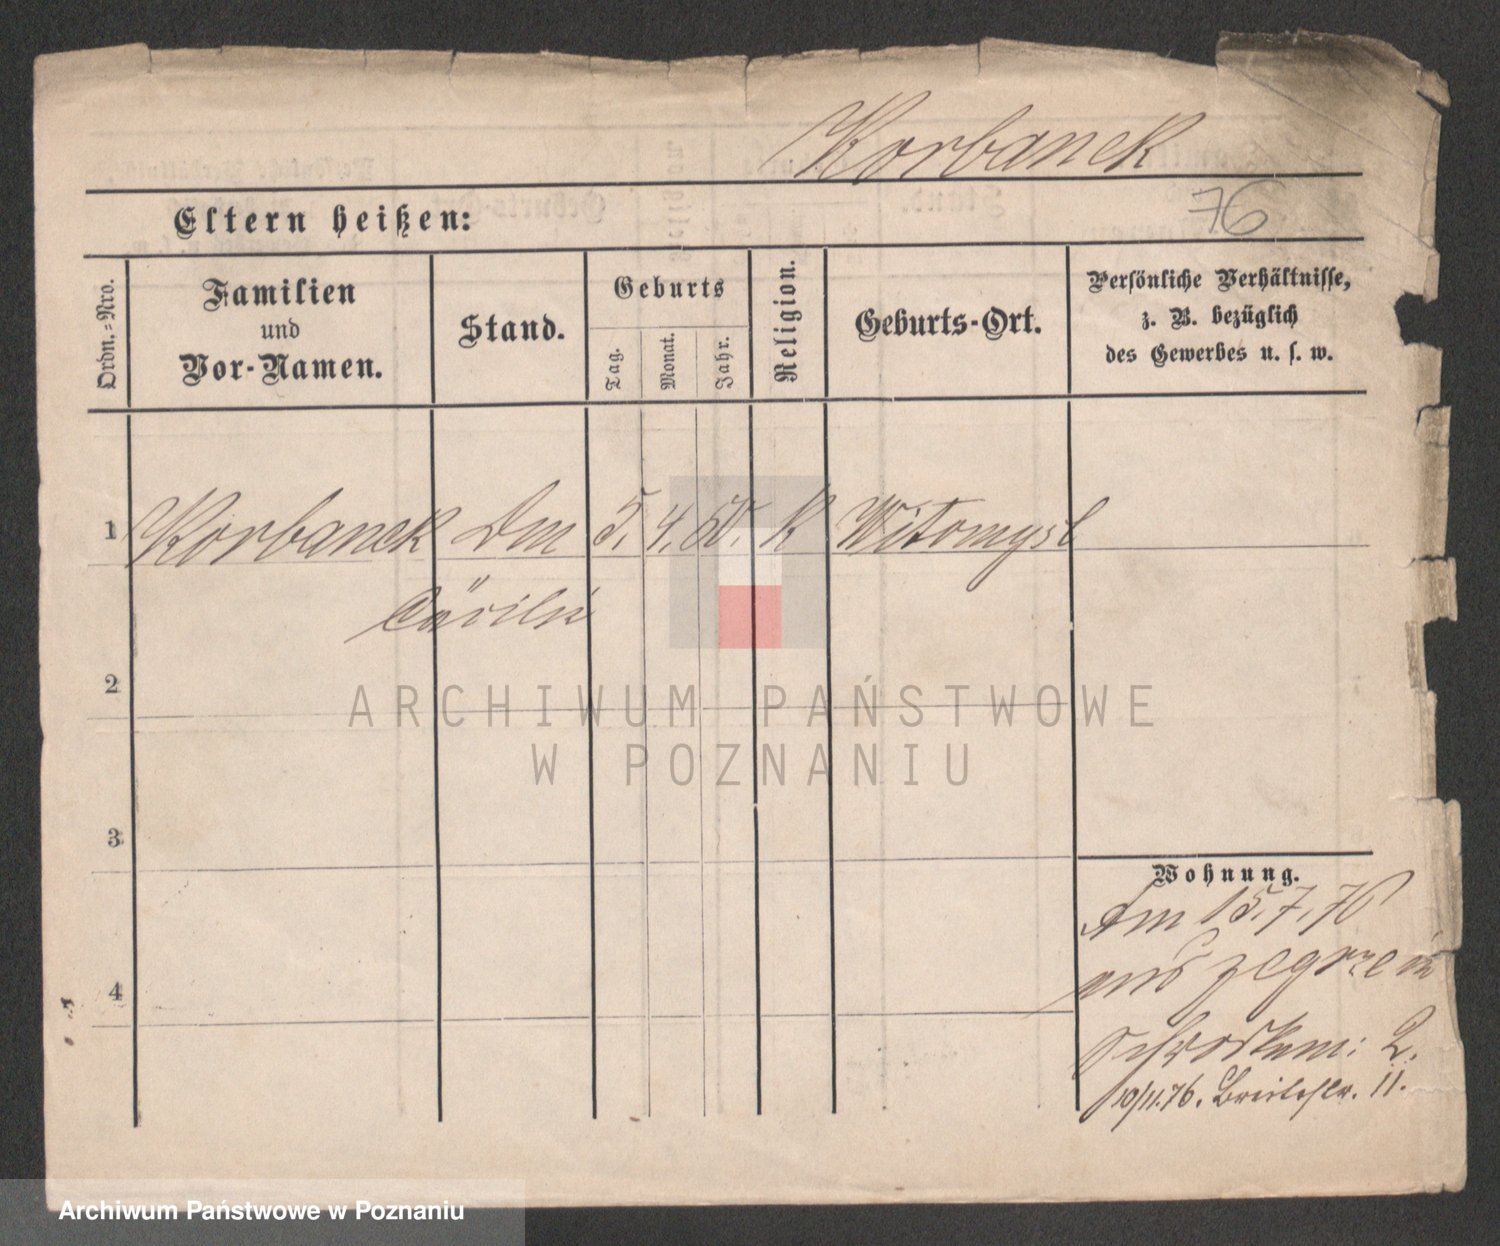 Korbanek
76
Eltern heißen:
Ordn.=Nro.
Familien
und
Vor-Namen.
Stand.
Geburts
Tag.
Monat.
Jahr.
Religion.
Geburts-Ort.
Persönliche Verhältnisse,
z. B. bezüglich
des Gewerbes u. s. w.
1 Korbanek Dm 5. 4. 50. K Witomysl
Cäcilie
2
3
4
Wohnung.
Am 15.7.76
aus Zegrze in
Schrodkam: 2.
10/11.76. Breitestr. 11.
ARCHIWUM PAŃSTWOWE
W POZNANIU
Archiwum Państwowe w Poznaniu